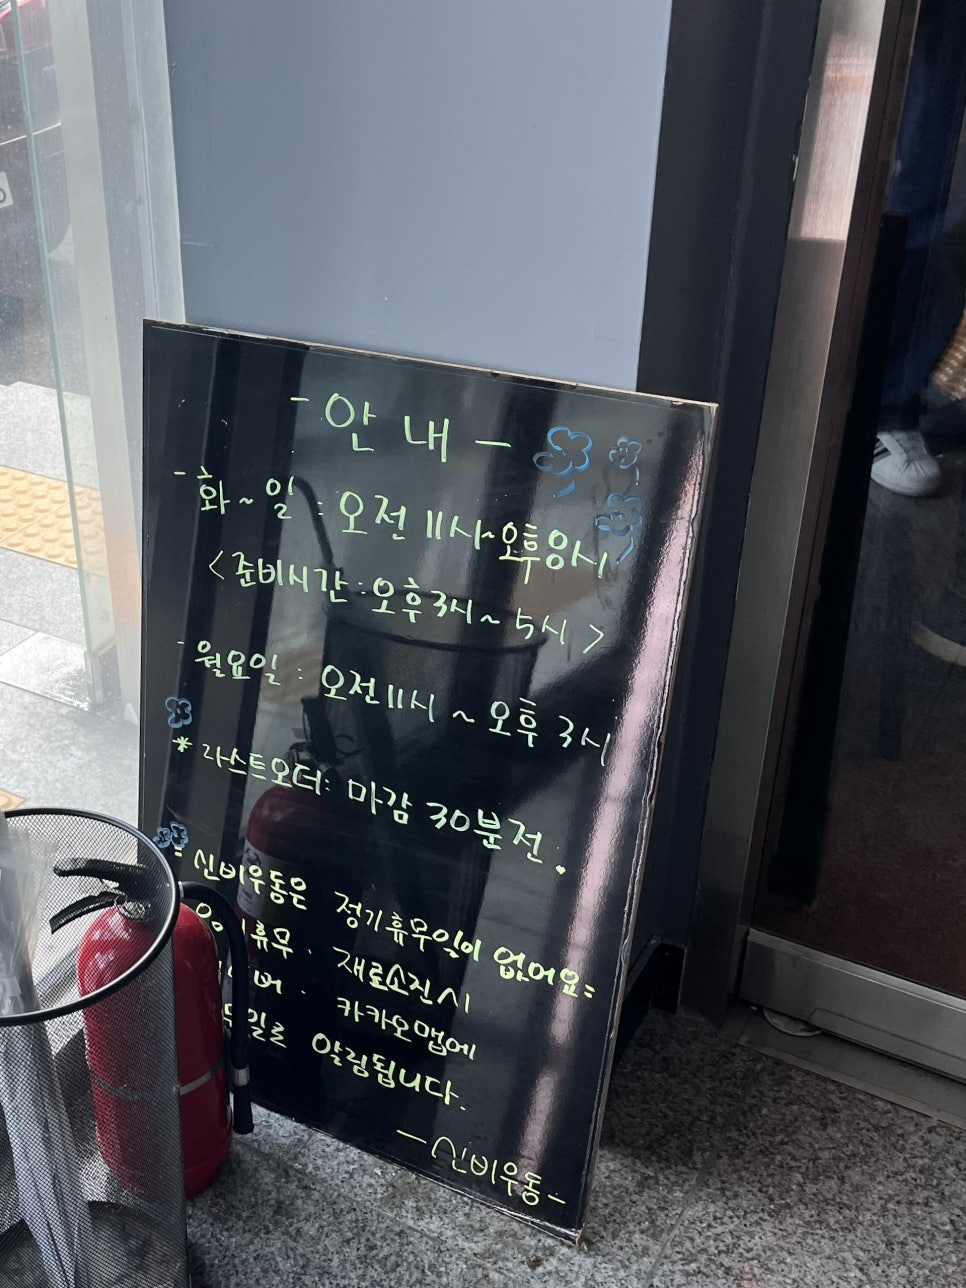 - 안내 -
- 화~일 : 오전 11시~오후 8시
<준비시간 : 오후 3시~5시>
- 월요일 : 오전 11시 ~ 오후 3시
* 라스트오더: 마감 30분전.
- 신비우동은 정기휴무일이 없어요=
휴무. 재료소진시
카카오맵에
알림됩니다.
- 신비우동 -